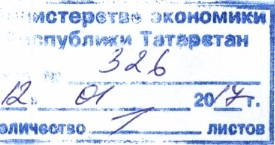 инистерство экономики
еспублики Татарстан
№ 326
12. 01 2017 г.
оличество 1 листов